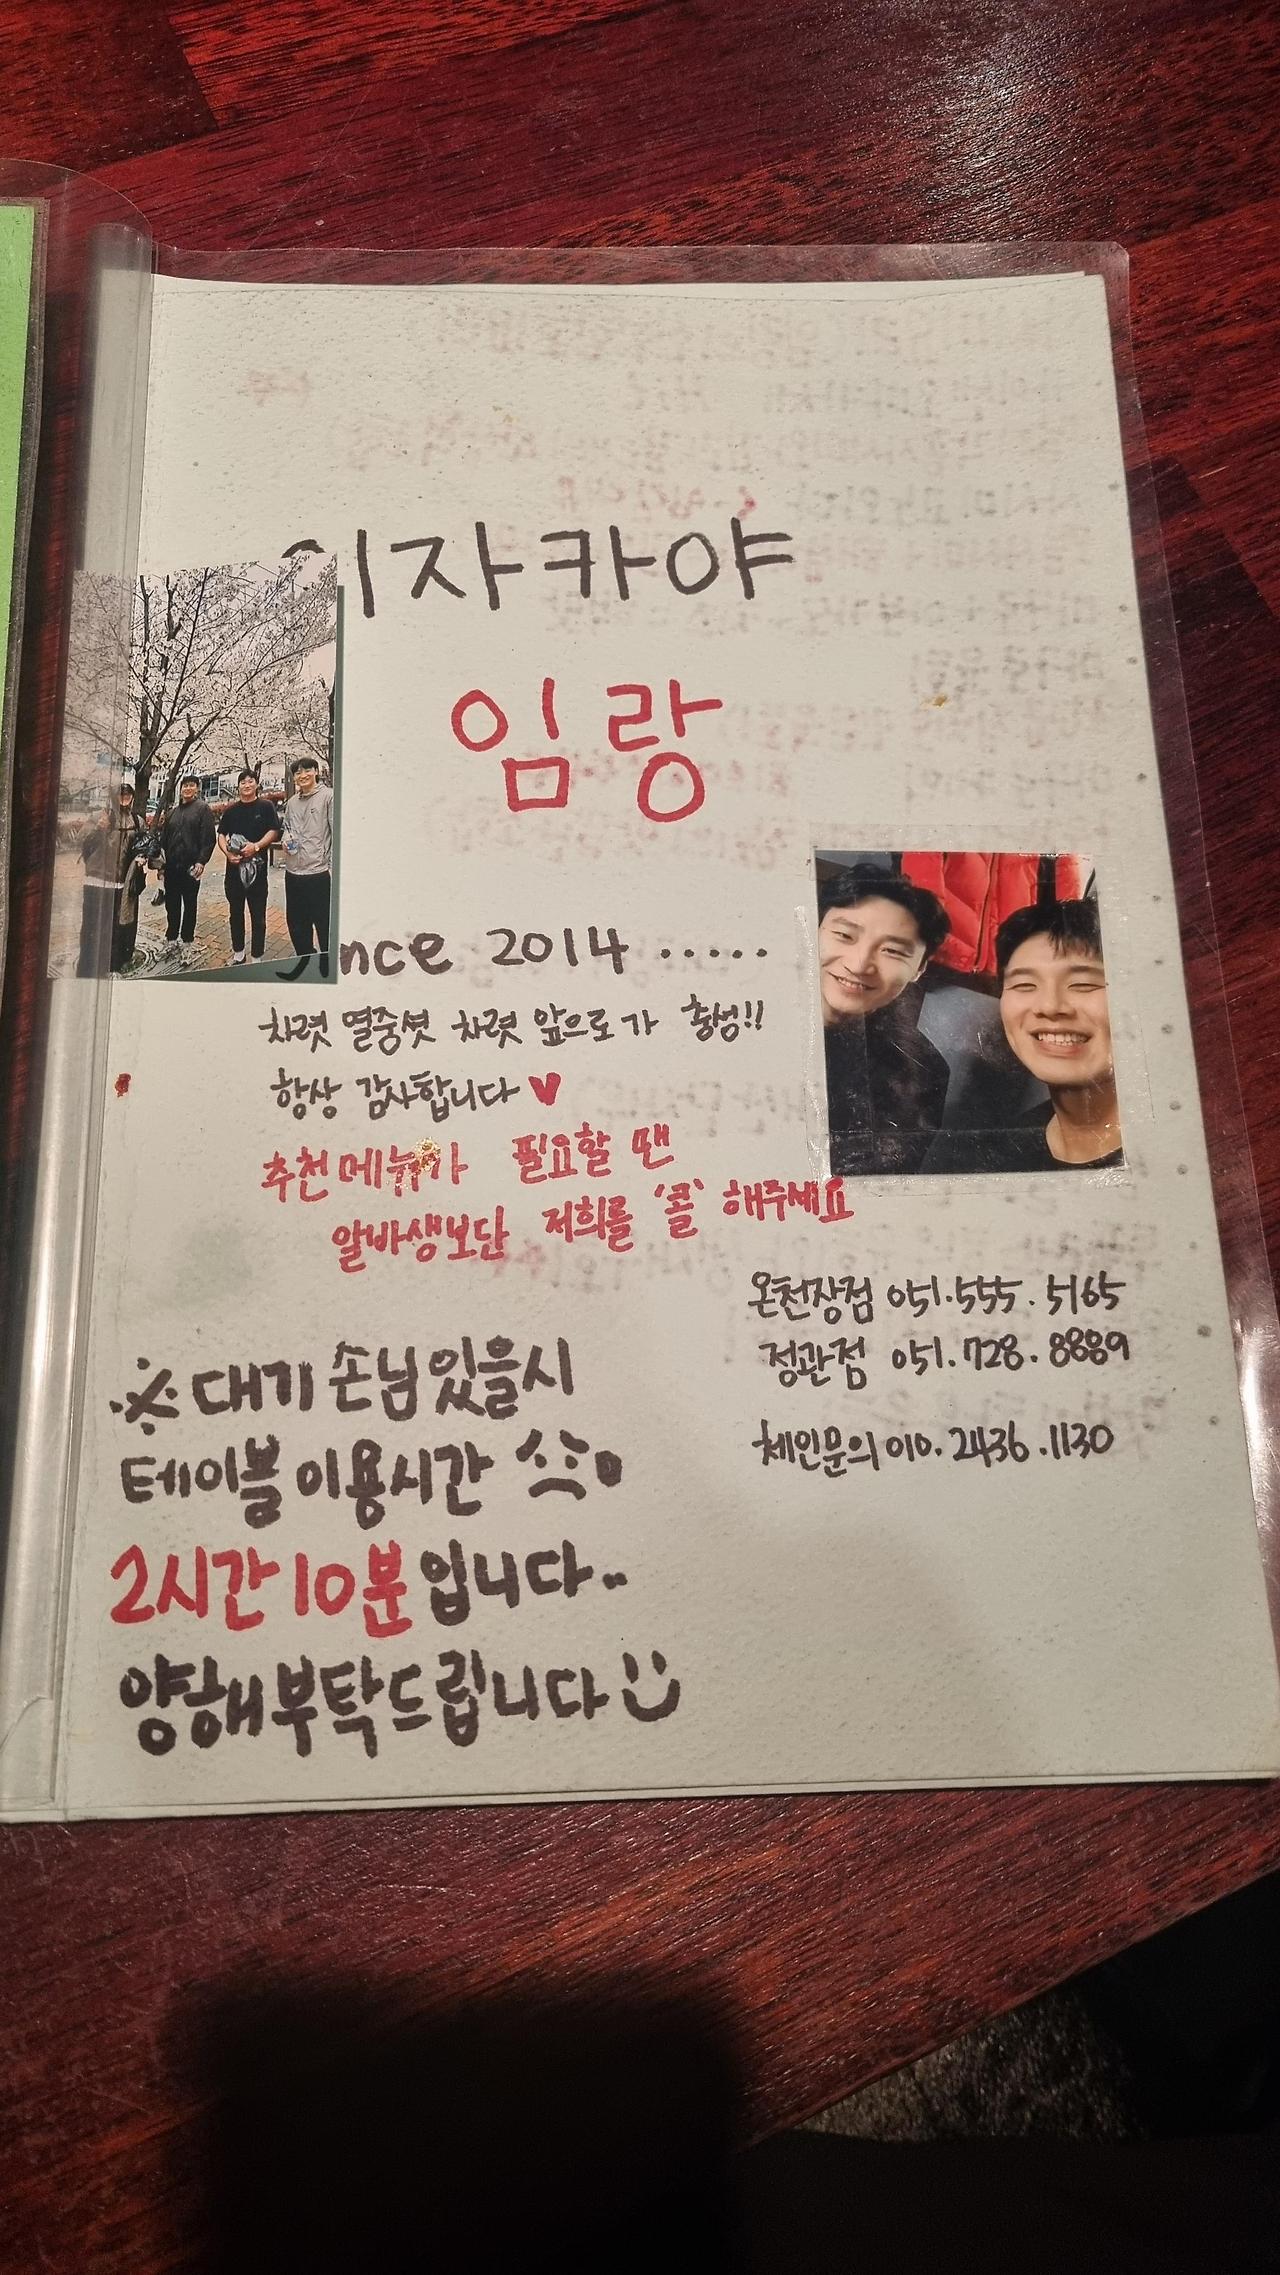 이자카야
임랑
since 2014 .....
차렷 열중셧 차렷 앞으로 가 충성!!
항상 감사합니다 ♥
추천메뉴가 필요할 땐
알바생보단 저희를 '콜' 해주세요
온천장점 051.555.5165
정관점 051.728.8889
체인문의 010.2436.1130
※ 대기 손님 있을시
테이블 이용시간
2시간 10분 입니다..
양해부탁드립니다